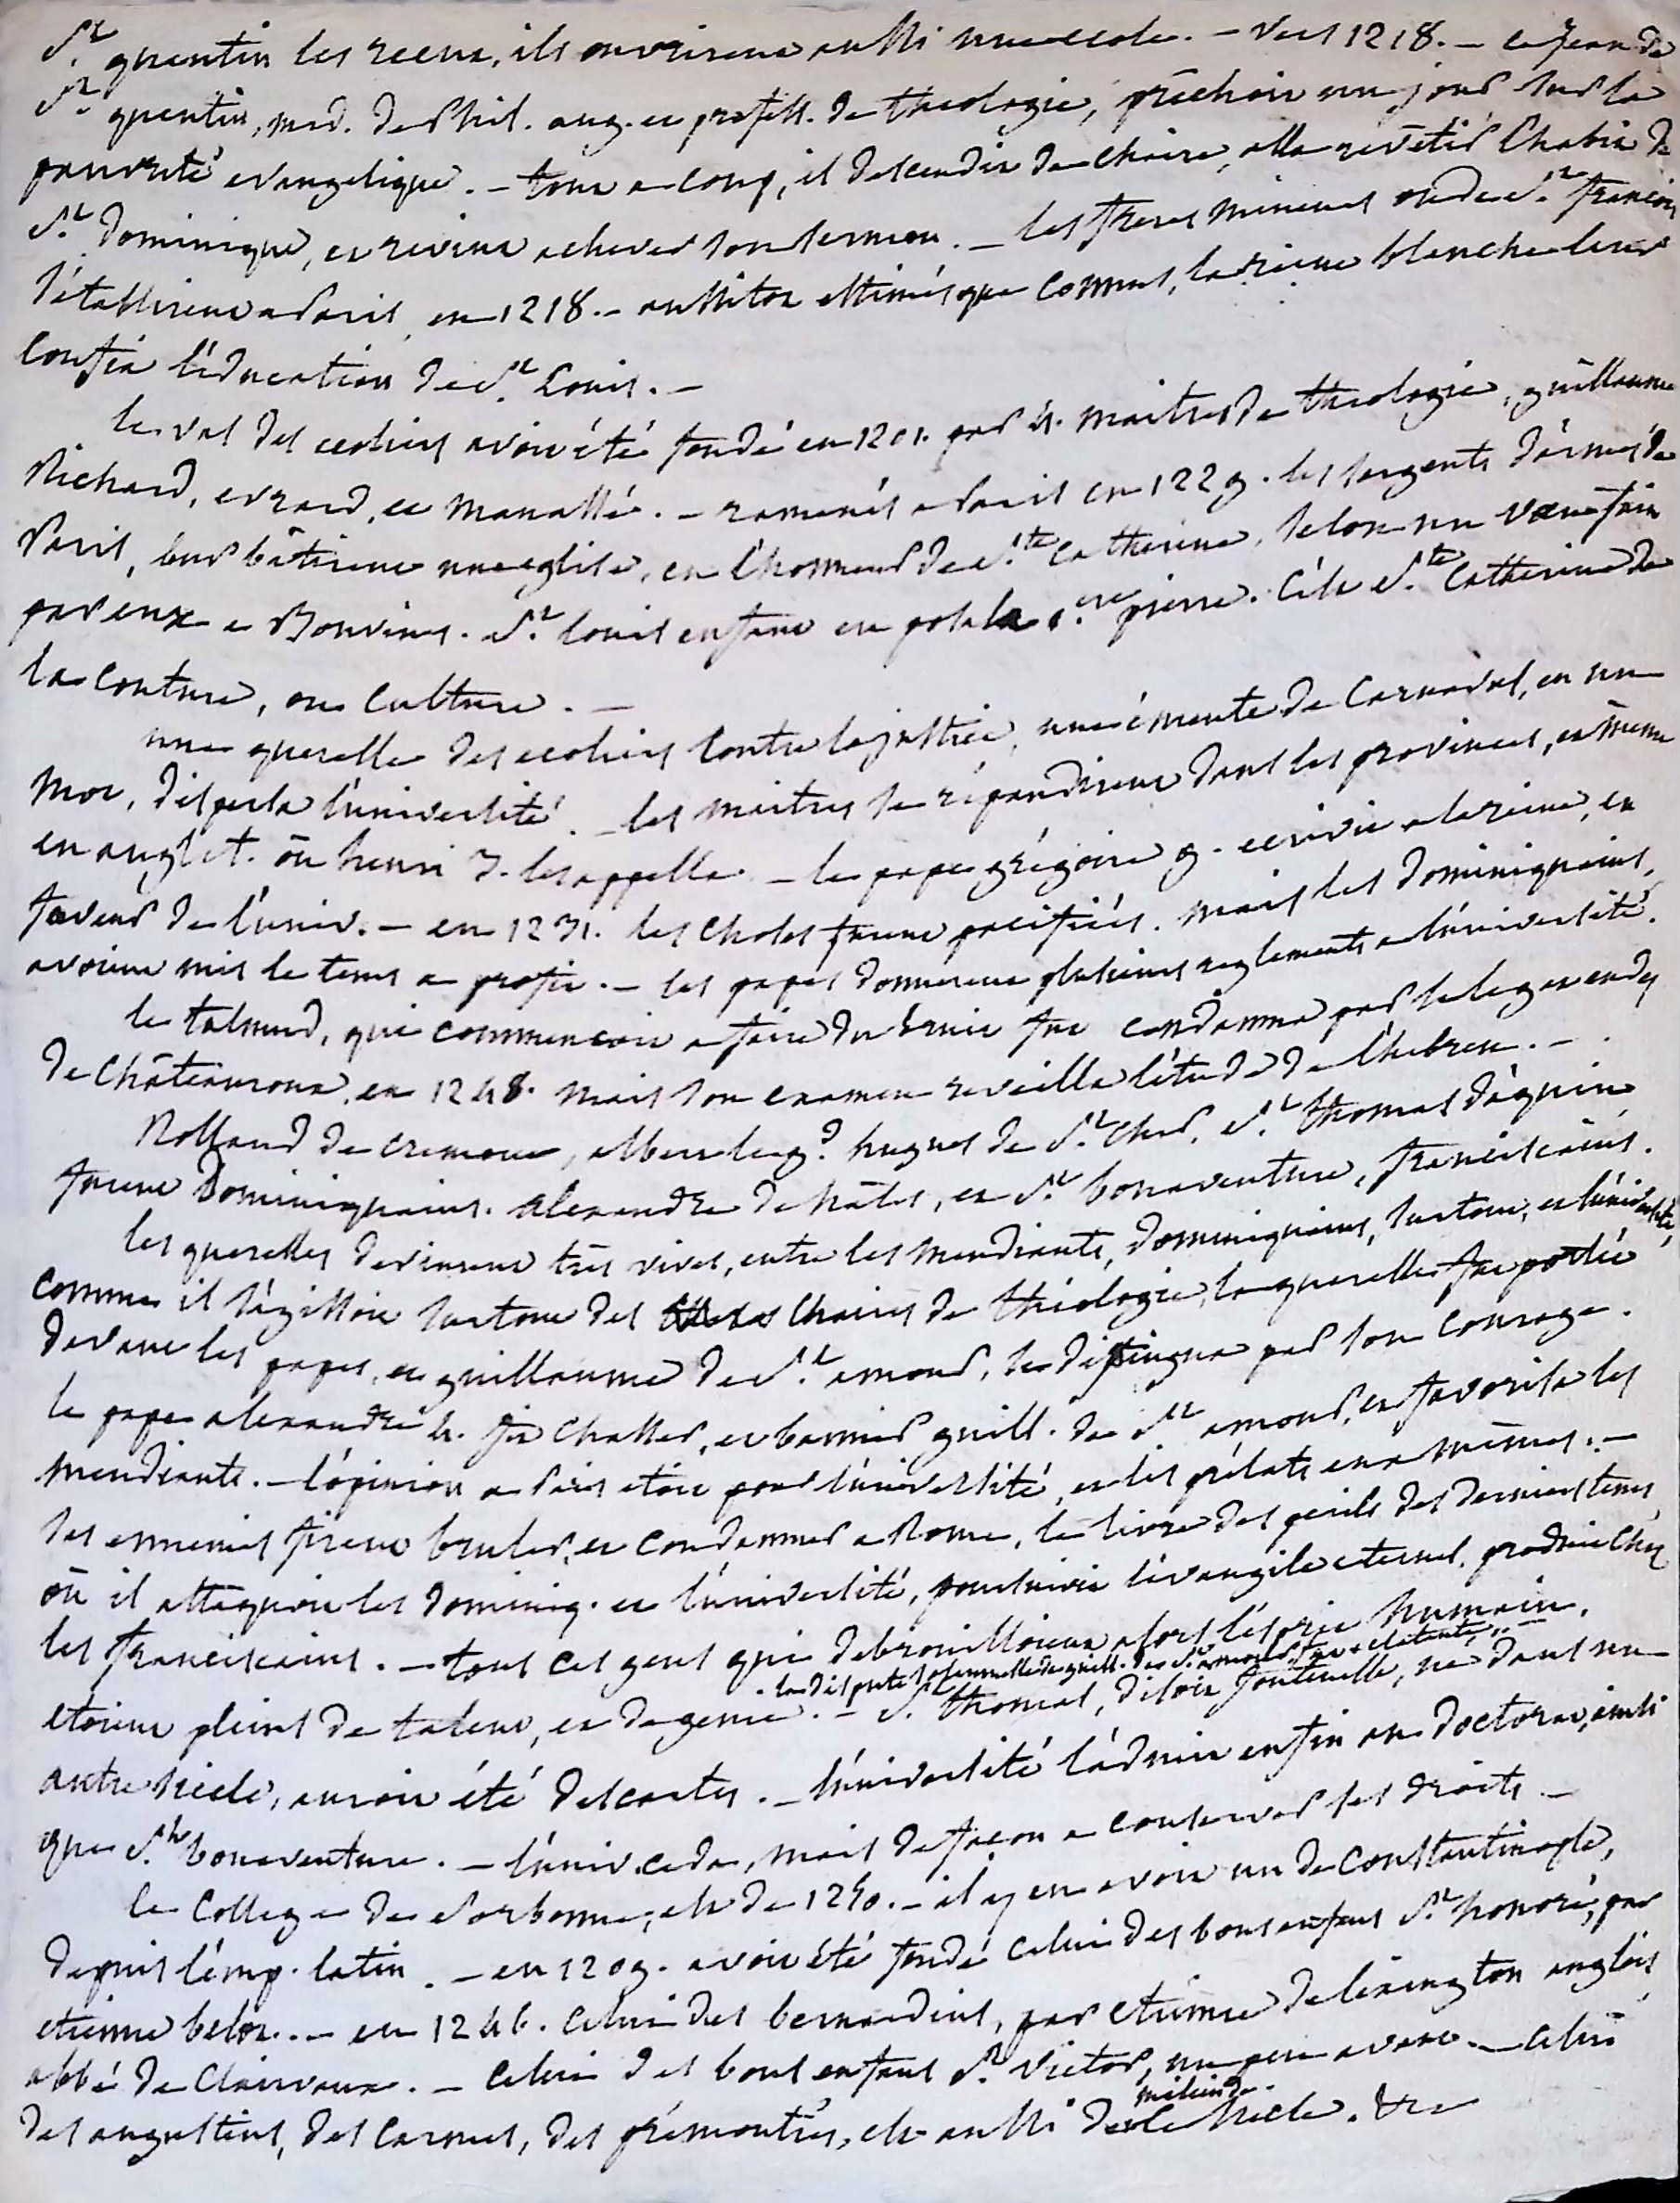 St quentin les recut, ils ouvrirent aussi une ecole. – vers 1218. – ce jean de
St quentin, med. de Phil. aug. et profess. de theologie, prêchoit un jour sur la
pauvreté evangelique. – tout a coup, il descendit de chaire, alla revêtir l'habit de
St Dominique, et revint achever son sermon. – les freres mineurs de St françois
s'établirent a Paris en 1218. – aussitot estimés que connus, la reine blanche leur
confia l'éducation de St Louis. –
le val des ecoliers avoit été fondé en 1201. par 4. maitres de theologie, guillaume
Richard, evrard, et manassé. – ramenés a Paris en 1229. les sergents d'armes de
Paris, leur bâtirent une eglise, en l'honneur de Ste Catherine, selon un vœu fait
par eux a Bouvines. St louis enfant en posa la 1.ere pierre. C'est Ste Catherine de
la couture, ou culture. –
une querelle des ecoliers contre la justice, une émeute de Carnaval, en un
mot, dispersa l'université. – les maitres se répandirent dans les provinces, et même
en anglet. où henri 3. les appella. – le pape grégoire 9. ecrivit a la reine, en
faveur de l'univ. – en 1231. les choses furent pacifiées. mais les dominiquains,
avoient mis le tems a profit. – les papes donnerent plusieurs reglements a l'université.
le talmud, qui commencoit a faire du bruit fut condamné par le legat eudes
de Châteauroux, en 1248. mais son examen reveilla l'étude de l'hebreu. –
Rolland de cremone, albert le gd hugues de St Cher, St thomas d'aquin
furent Dominiquains. alexandre de hâles, et St bonaventure, franciscains.
les querelles devinrent très vives, entre les mendiants, dominiquains, surtout, et l'université,
comme il s'agissoit surtout des chaires de théologie, la querelle fut portée
devant les papes, et guillaume de St amour, se distingua par son courage.
le pape alexandre 4. fit chasser, et bannir guill. de St amour, et favorisa les
mendiants. – l'opinion a Paris etoit pour l'université, et les prélats eux mêmes. –
ses ennemis firent bruler, et condamner a Rome, le livre des perils des derniers tems
où il attaquoit les dominiq. et l'université, poursuivit l'évangile eternel, produit chez
les franciscains. – tous ces gens qui debrouilloient alors l'esprit humain,
. la dispute solennelle de guill. de St amour fut eclatante. –
etoient pleins de talent, et de genie. – St thomas, disoit fontenelle, né dans un
autre siecle, auroit été Descartes. – l'université l'admit enfin au doctorat, ainsi
que St bonaventure. – l'univ. ceda, mais de façon a conserver ses droits –
le College de Sorbonne, est de 1250. – il y en avoit un de Constantinople,
depuis l'emp. latin. – en 1209. avoit été fondé celui des bons enfans St honoré, par
etienne belot. – en 1246. celui des bernardins, par etienne de lexington anglois
abbé de Clairvaux. – celui des bons enfans St Victor, un peu avant. – celui
milieu du
des augustins, des carmes, des prémontrés, est aussi de ce siecle. &c